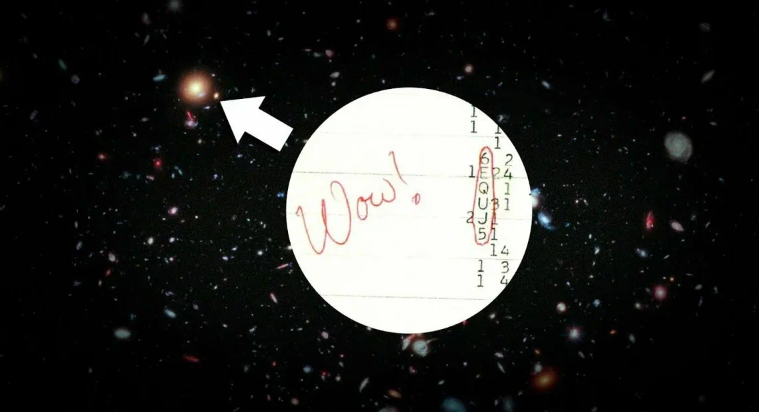 Wow!
1
1 1
1
6 2
1 E 24
Q 1
U 31
2 J 1
5 1
14
1 3
1 4